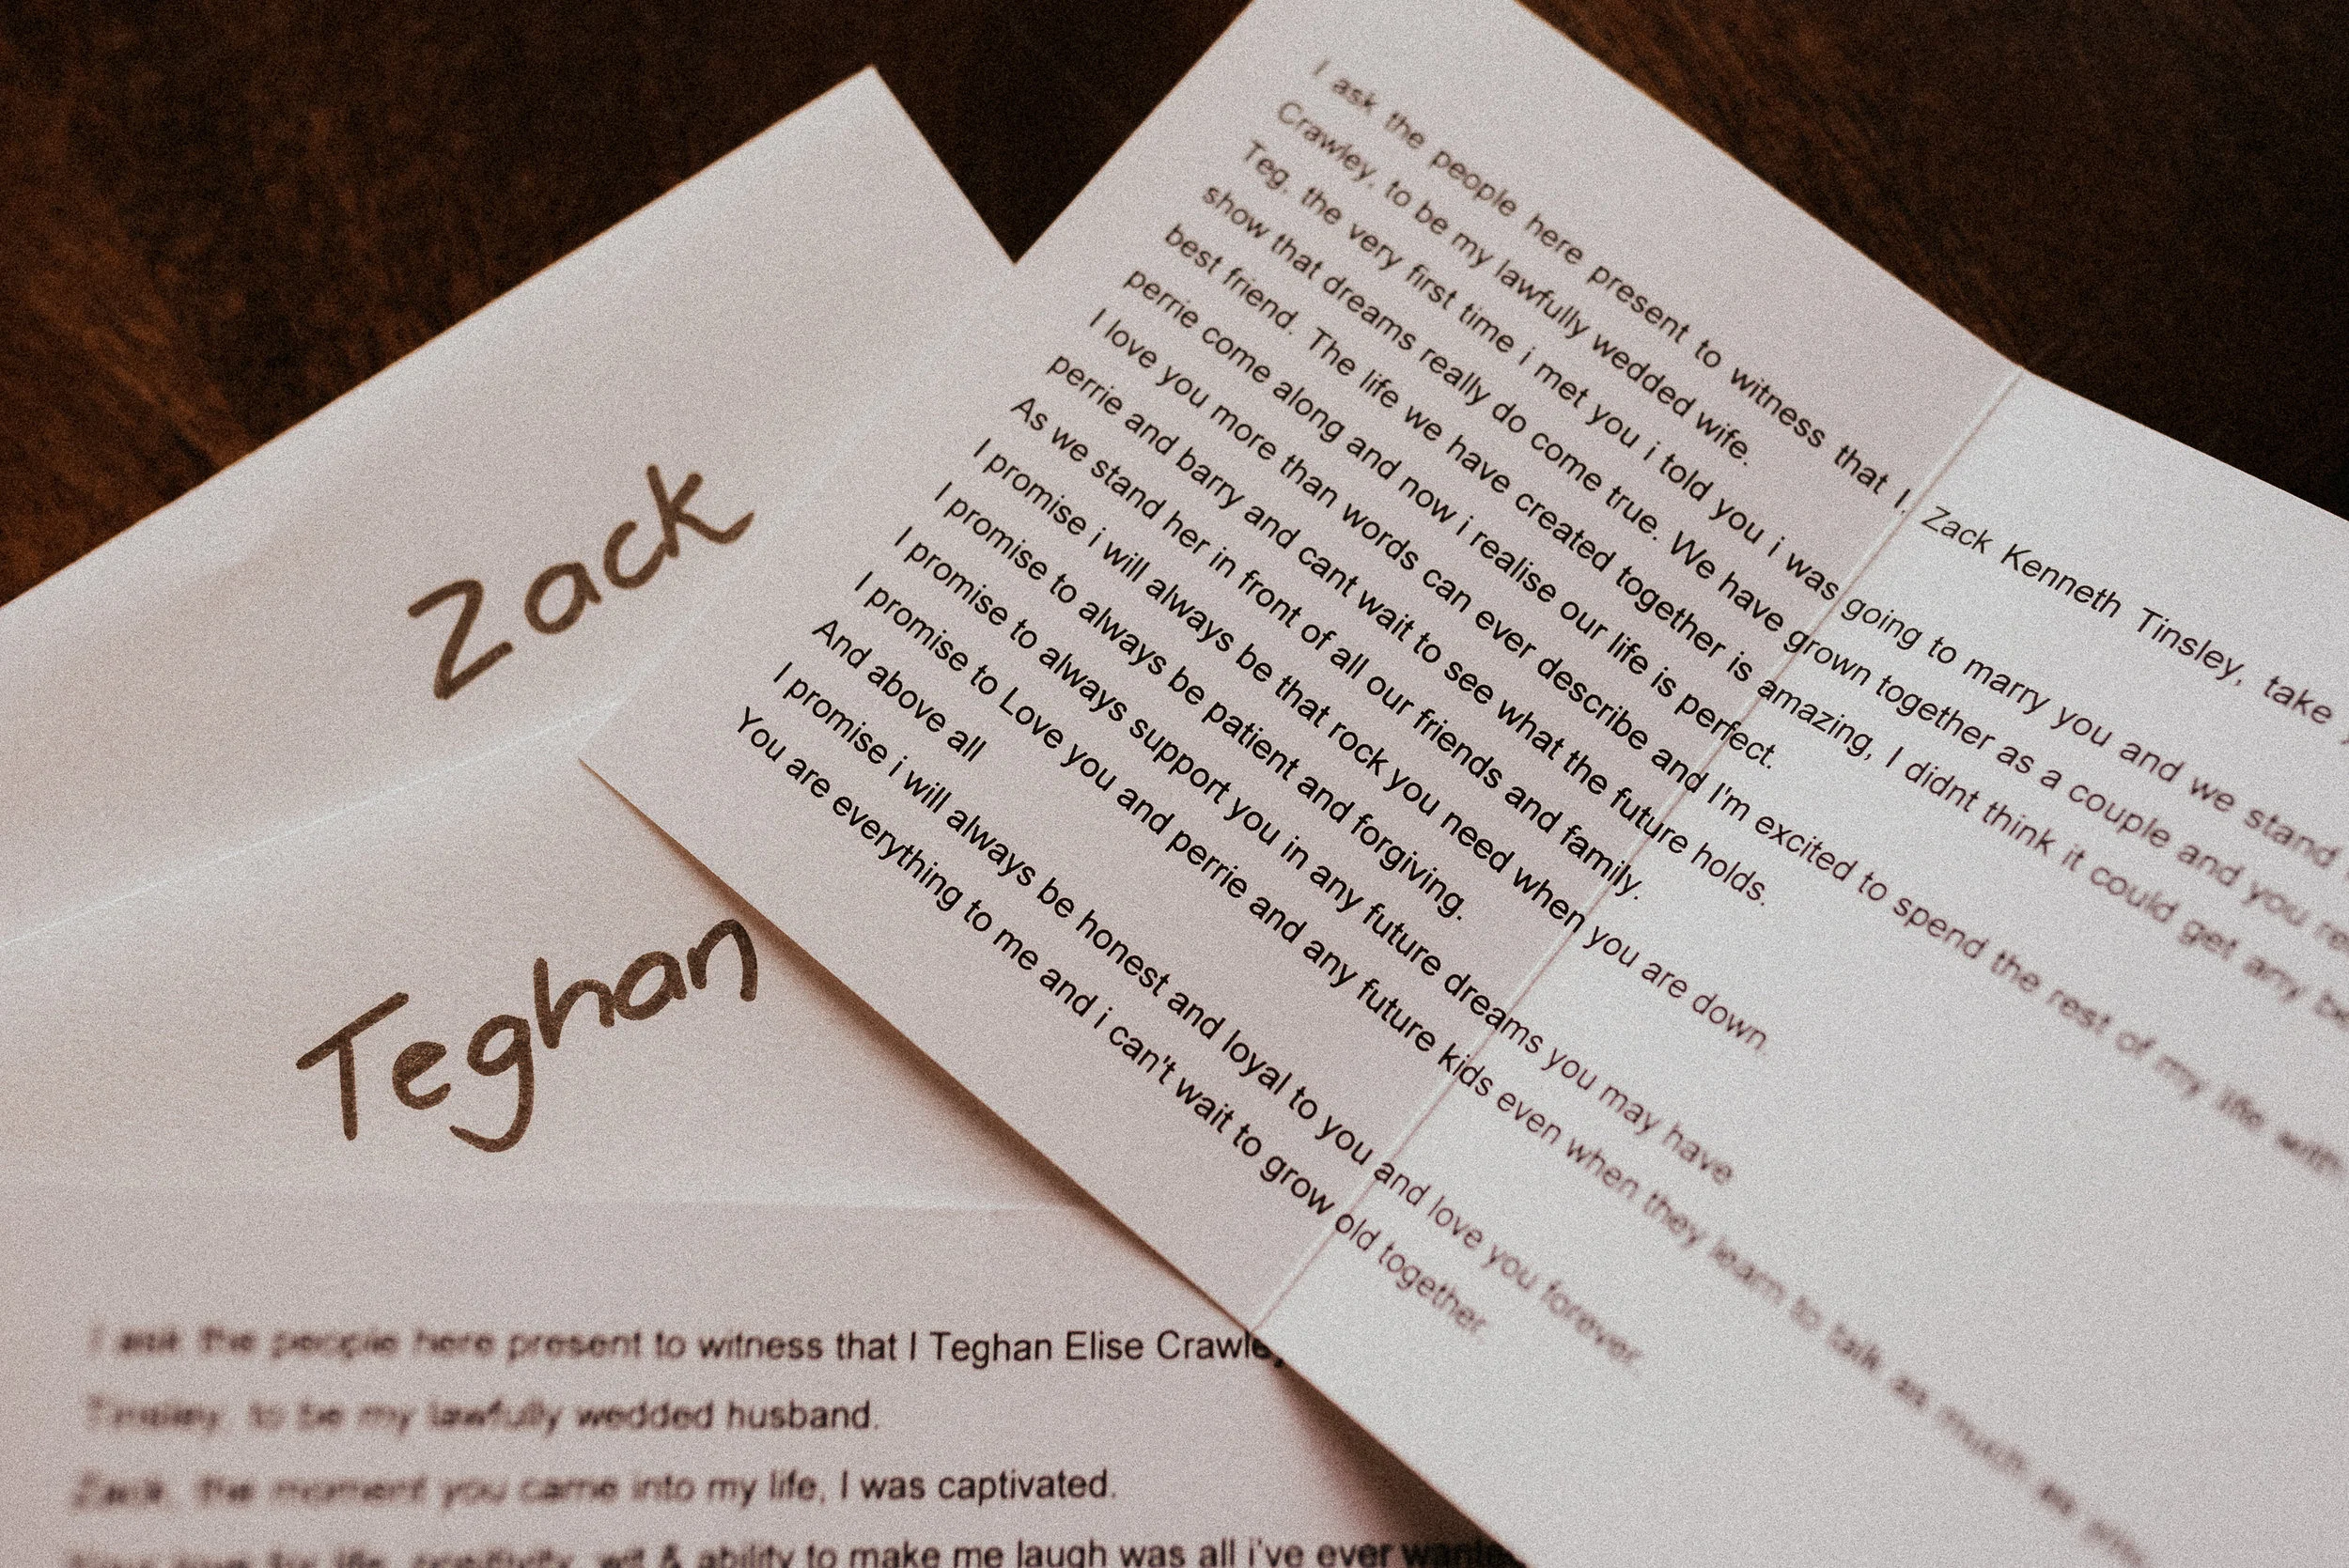 Zack
Teghan
I ask the people here present to witness that I, Zack Kenneth Tinsley, take
Crawley, to be my lawfully wedded wife.
Teg, the very first time i met you i told you i was going to marry you and we stand
show that dreams really do come true. We have grown together as a couple and you
best friend. The life we have created together is amazing, I didnt think it could get any
perrie come along and now i realise our life is perfect.
I love you more than words can ever describe and I'm excited to spend the rest of my life with
perrie and barry and cant wait to see what the future holds.
As we stand her in front of all our friends and family.
I promise i will always be that rock you need when you are down.
I promise to always be patient and forgiving.
I promise to always support you in any future dreams you may have
I promise to Love you and perrie and any future kids even when they learn to talk as much as
And above all
I promise i will always be honest and loyal to you and love you forever.
You are everything to me and i can't wait to grow old together.
I ask the people here present to witness that I Teghan Elise
Tinsley, to be my lawfully wedded husband.
Zack, the moment you came into my life, I was captivated.
life, positivity, wit & ability to make me laugh was all i've ever